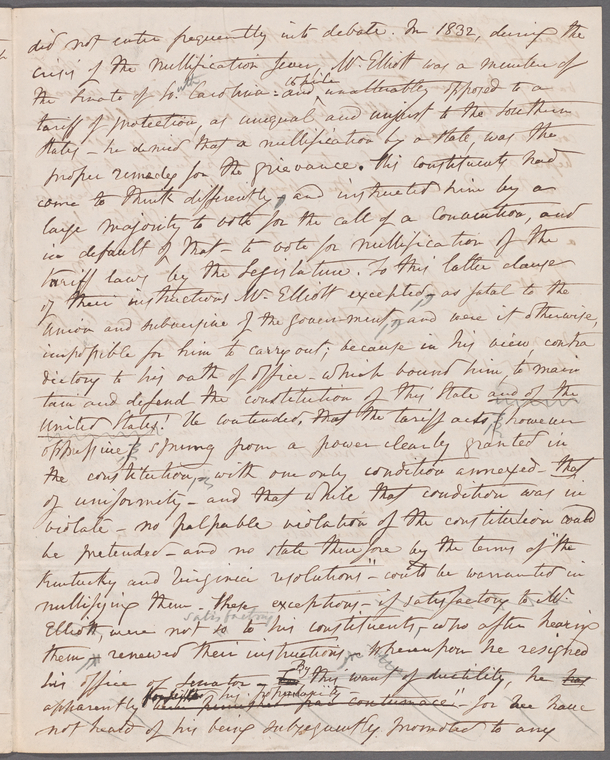 did not enter frequently into debate. In 1832, during the
crisis of the Nullification fever, Mr. Elliott was a member of
with while
the Senate of So. Carolina: and unalterably opposed to a
tariff of protection, as unequal and unjust to the Southern
States – he denied that a nullification by a state, was the
proper remedy for the grievance. His constituents had
come to think differently, and instructed him by a
large majority to vote for the call of a Convention, and
in default of that – to vote for nullification of the
tariff laws by the Legislature. To this latter clause
of their instructions Mr. Elliott excepted, as fatal to the
Union and subversive of the government, and were it otherwise,
impossible for him to carry out; because in his view contra
dictory to his oath of office – which bound him to main
tain and defend the constitution of this State and of the
United States! He contended, that the tariff acts, however
oppressive, sprung from a power clearly granted in
the constitution, with one only condition annexed – that
of uniformity – and that while that condition was in
violate – no palpable violation of the constitution could
be pretended – and no state therefore by the terms of "the
Kentucky and Virginia resolutions" – could be warranted in
nullifying them – these exceptions – if satisfactory to Mr.
satisfactory
Elliott, were not so to his constituents, who after hearing
them, renewed their instructions. Whereupon he resigned
By
his office of Senator – this want of ductility, he has
his popularity
apparently been punished "par contumace" – for we have
not heard of his being subsequently promoted to any